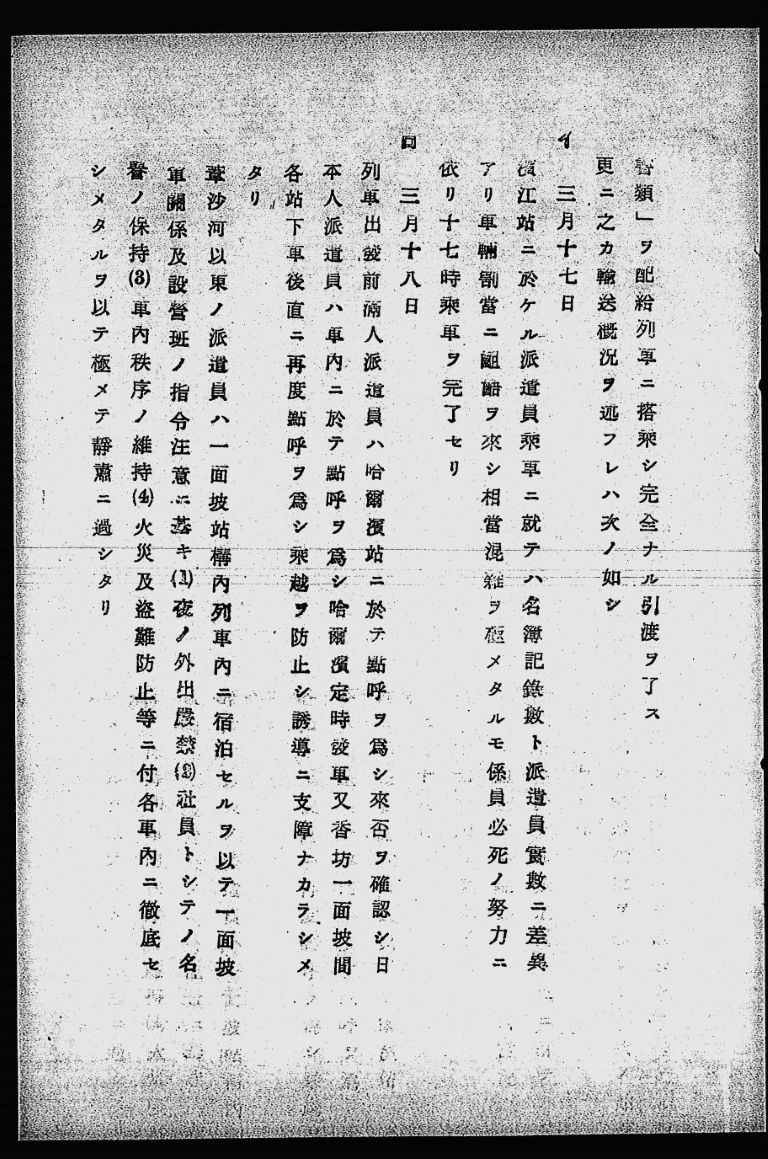 書類」ヲ配給列車ニ搭乘シ完全ナル引渡ヲ了ス
更ニ之カ輸送槪況ヲ述フレハ次ノ如シ
イ 三月十七日
濱江站ニ於ケル派遣員乘車ニ就テハ名簿記錄數ト派遣員實數ニ差異
アリ車輛割當ニ齟齬ヲ來シ相當混雜ヲ極メタルモ係員必死ノ努力ニ
依リ十七時乘車ヲ完了セリ
ロ 三月十八日
列車出發前滿人派遣員ハ哈爾濱站ニ於テ點呼ヲ爲シ來否ヲ確認シ日
本人派遣員ハ車內ニ於テ點呼ヲ爲シ哈爾濱定時發車又香坊一面坡間
各站下車後直ニ再度點呼ヲ爲シ乘越ヲ防止シ誘導ニ支障ナカラシメ
タリ
葦沙河以東ノ派遣員ハ一面坡站構內列車內ニ宿泊セルヲ以テ一面坡
軍關係及設營班ノ指令注意ニ基キ(1)夜ノ外出嚴禁(2)社員トシテノ名
譽ノ保持(3)車內秩序ノ維持(4)火災及盜難防止等ニ付各車內ニ徹底セ
シメタルヲ以テ極メテ靜肅ニ過シタリ